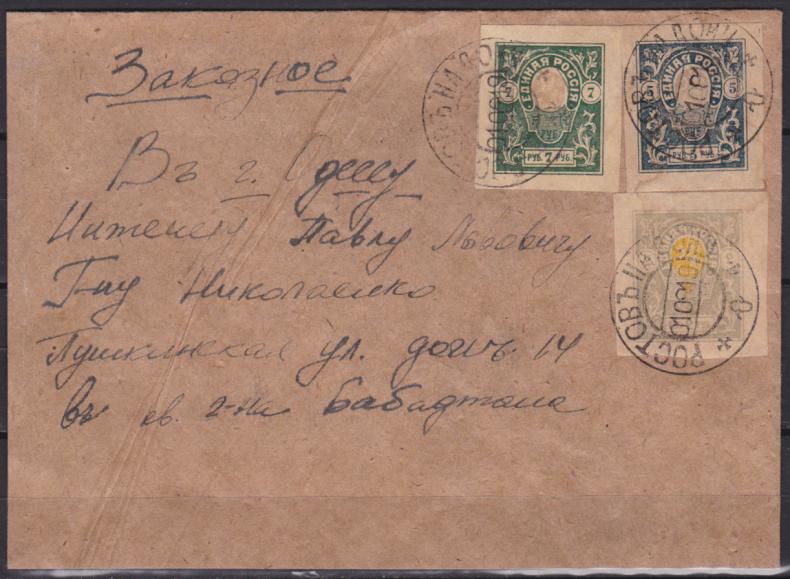 Заказное
Въ г. Одессу
Инженеру Павлу Львовичу
Г-ну Николаенко
Пушкинская ул. домъ 14
въ кв. г-на Бабаджана
ЕДИНАЯ РОССІЯ
7 7
РУБ. 7 РУБ.
ЕДИНАЯ РОССІЯ
5 5
РОСТОВЪ НА ДОНУ
РОСТОВЪ НА